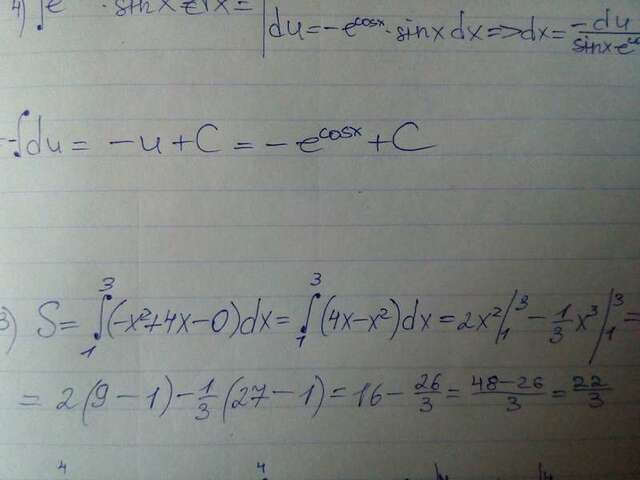 4) ∫e · sinx dx = | du = -e^cosx · sinx dx => dx = -du/(sinx·e
-∫du = -u + C = -e^cosx + C
3) S = ∫₁³(-x²+4x-0)dx = ∫₁³(4x-x²)dx = 2x²|₁³ - 1/3 x³|₁³ =
= 2(9-1) - 1/3(27-1) = 16 - 26/3 = (48-26)/3 = 22/3